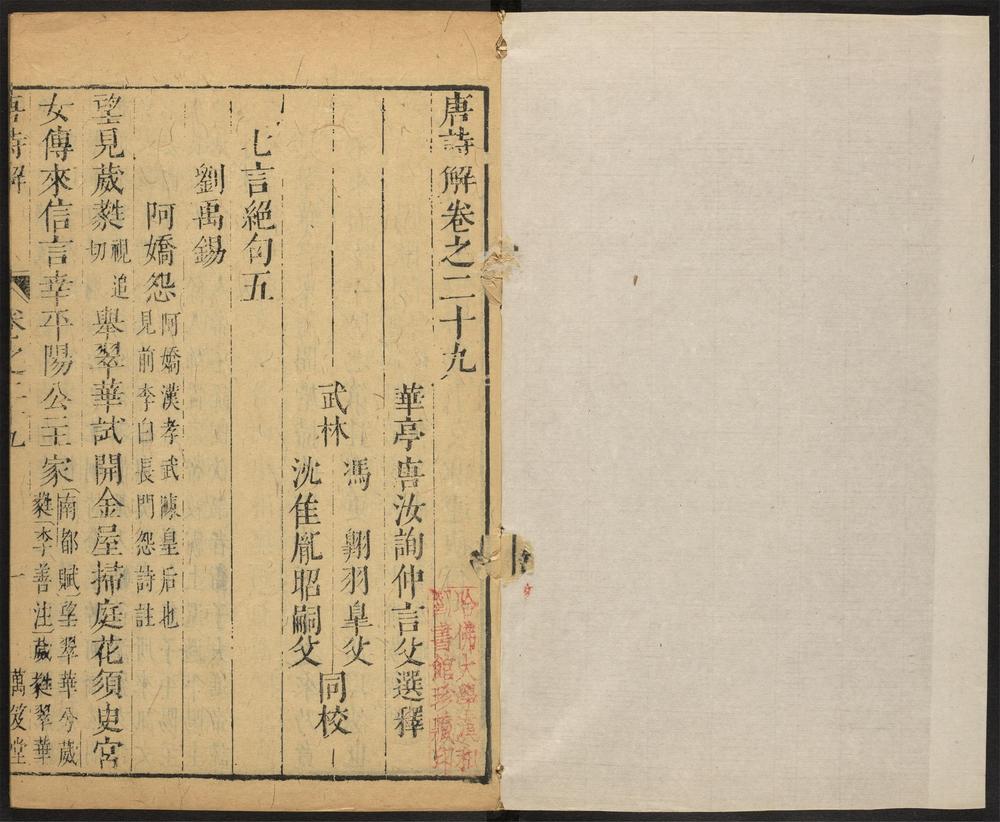 唐詩解卷之二十九
華亭唐汝詢仲言父選釋
武林
馮 翺羽皐父
沈隹胤昭嗣父
同校
七言絶句五
劉禹錫
阿嬌怨
阿嬌漢孝武陳皇后也
見前李白長門怨詩註
望見葳蕤
視追
切
舉翠華試開金屋掃庭花須臾宮
女傳來信言幸平陽公主家
南都賦望翠華兮葳
蕤李善注葳蕤翠華
唐詩解
卷之二十九
一
萬笈堂
哈佛大學漢和
圖書館珍藏印